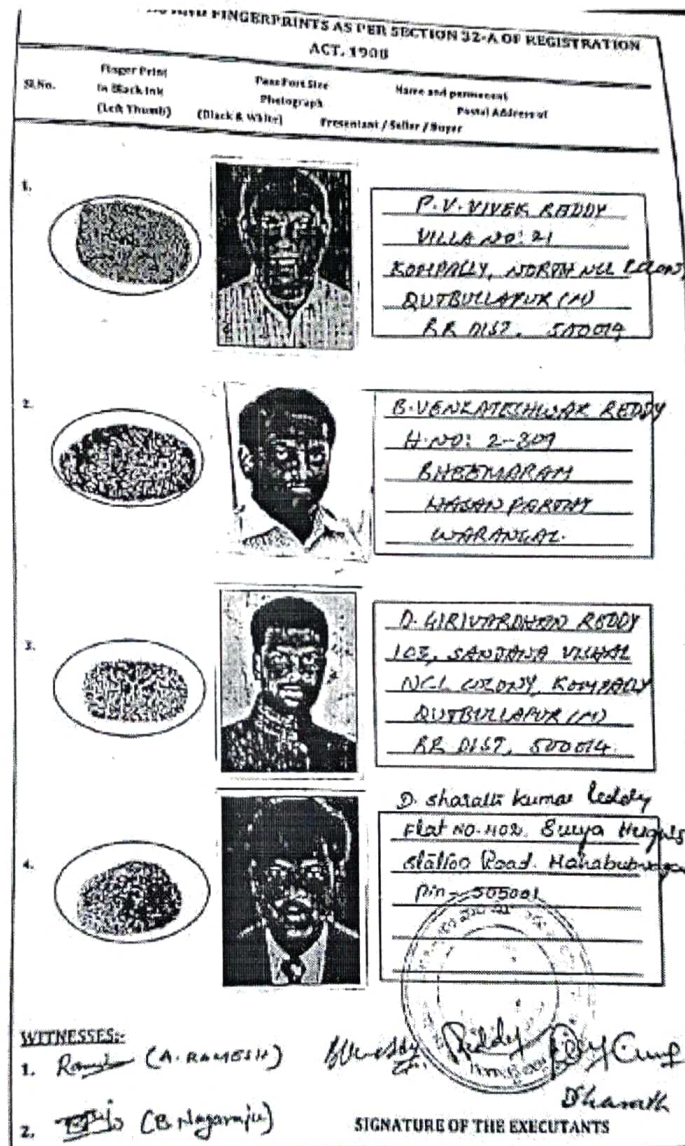 AND FINGERPRINTS AS PER SECTION 32-A OF REGISTRATION
ACT, 1908
Sl.No.
Finger Print
in Black Ink
(Left Thumb)
Pass Port Size
Photograph
(Black & White)
Name and permanent
Postal Address of
Presentant / Seller / Buyer
1.
P.V. VIVEK REDDY
VILLA NO: 21
KOMPALLY, NORTH NCL COLONY
QUTBULLAPUR (M)
RR DIST. 500014
2.
B. VENKATESHWAR REDDY
H.NO: 2-309
BHEEMARAM
HASAN PARTHY
WARANGAL.
3.
D. GIRIVARDHAN REDDY
NCL COLONY, KOMPALLY
QUTBULLAPUR (M)
RR DIST, 500014.
4.
D. Sharath kumar Reddy
Flat NO-402, Surya Heights
station Road. Mahabubnagar
pin - 505001
WITNESSES:-
1. (A. RAMESH)
Reddy
Sharath
2. (B. Nagaraju)
SIGNATURE OF THE EXECUTANTS